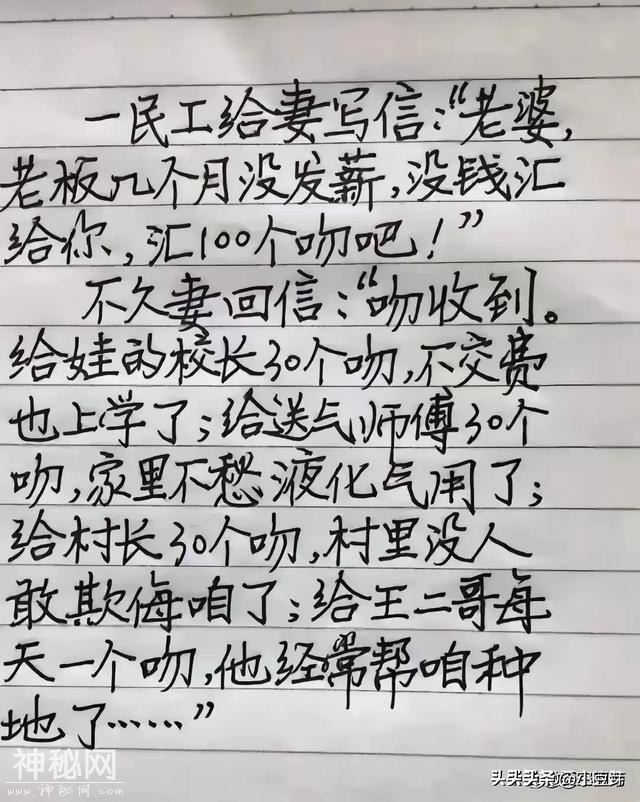 一民工给妻写信：“老婆，
老板几个月没发薪，没钱汇
给你，汇100个吻吧！”
不久妻回信：“吻收到。
给娃的校长30个吻，不交费
也上学了；给送气师傅30个
吻，家里不愁液化气用了；
给村长30个吻，村里没人
敢欺侮咱了；给王二哥每
天一个吻，他经常帮咱种
地了……”
神秘网
www.shenmiwang.com